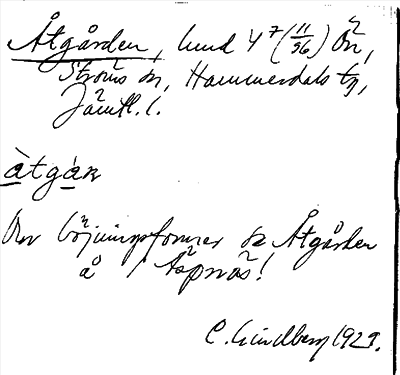 Åtgården, hmd 4⁷ (11/96) Ön,
Ströms sn, Hammerdals tg,
Jämtl. l.
àtgán
Om böjningsformer se Åtgården
å 1 Äspnäs!
C. Lindberg 1929.